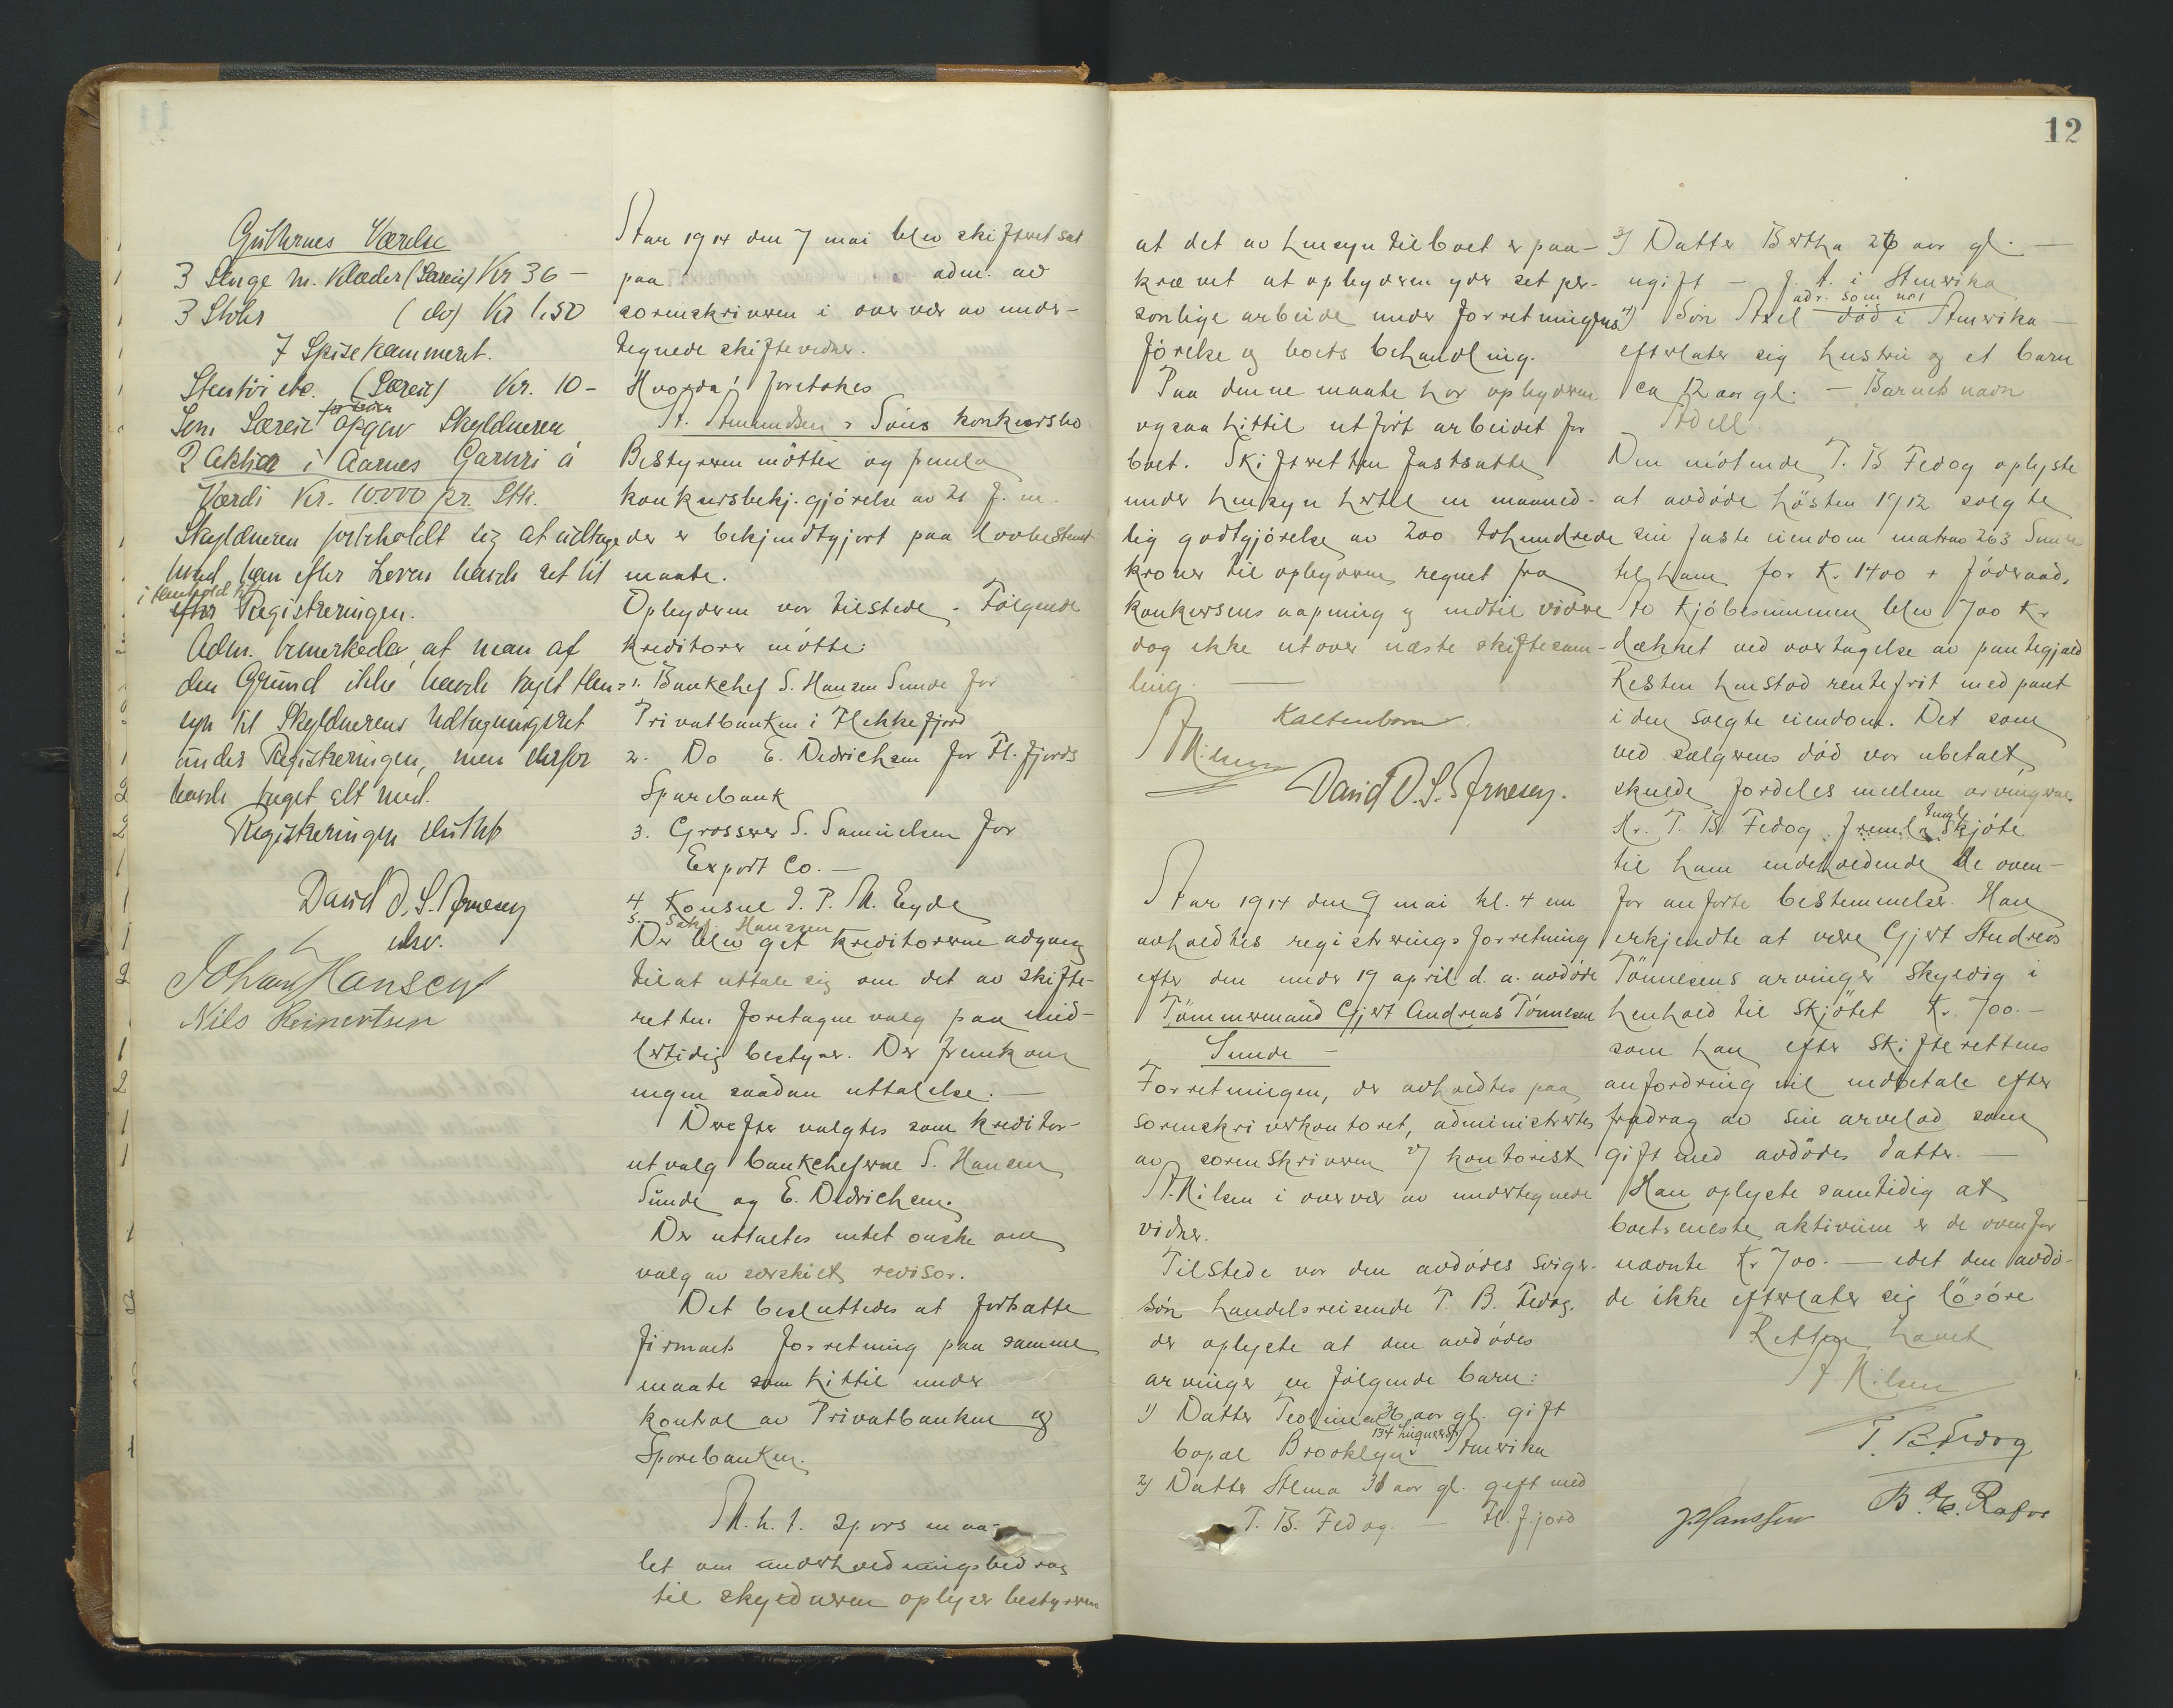 12
Gutternes Værelse
3 Senge m. Klæder (Særeie) Kr 36 –
3 Stoler (do) Kr 1,50
I Spisekammeret.
Stentøi etc. (Særeie) Kr. 10 –
Som Særeie for Fruen opgav Skyldneren
2 Aktier i Aarnes Garveri á
Værdi Kr. 10000 pr. Stk.
Skyldneren forbeholdt sig at udtage
hvad han efter Loven havde ret til
i Henhold til
efter Registreringen.
Adm. bemerkede, at man af
den Grund ikke havde taget Hen-
syn til Skyldnerens Udtagungsret
under Registreringen, men derfor
havde taget alt med.
Registreringen sluttet
David D. S. Arnesen
ehv.
Johan Hansen
Nils Reinertsen
Aar 1914 den 7 mai blev skifteret sat
paa adm. av
sorenskriveren i overvær av under-
tegnede skiftevidner.
Hvorda! foretokes
A. Amundsen & Søns konkursbo
Bestyreren møtte og fremla
konkursbekj.gjørelse av 21 f. m.
der er bekjendtgjort paa lovbestemt
maate.
Opbyderen var tilstede. Følgende
kreditorer møtte:
1. Bankchef S. Hansen Sunde for
Privatbanken i Flekkefjord
2. Do E. Didrichsen for Fl. fjords
Sparebank
3. Grosserer S. Samuelsen for
Export Co. –
4 Konsul J. P. M. Eyde
5. Sakf. Hanssen
Der blev git kreditorerne adgang
til at uttale sig om det av skifte-
retten foretagne valg paa mid-
lertidig bestyrer. Der fremkom
ingen saadan uttalelse. –
Derefter valgtes som kreditor-
utvalg bankcheferne S. Hansen
Sunde og E. Didrichsen.
Der uttaltes intet ønske om
valg av særskilt revisor.
Det besluttedes at fortsætte
firmaets forretning paa samme
maate som hittil under
kontrol av Privatbanken og
Sparebanken.
M. h. t. spørsmaa-
let om underholdningsbidrag
til skyldneren oplyser bestyreren
at det av hensyn til boet er paa-
krævet at opbyderen yder set per-
sonlige arbeide under forretningens
førelse og boets behandling.
Paa denne maate har opbyderen
ogsaa hittil utført arbeidet for
boet. Skifteretten fastsatte
under hensyn hertil en maaned-
lig godtgjørelse av 200 tohundrede
kroner til opbyderen regnet fra
konkursens aapning og indtil videre
dog ikke utover næste skiftesam-
ling. –
Kaltenborn
A. Nilsen
David D. S. Arnesen.
Aar 1914 den 9 mai kl. 4 em
avholdtes registreringsforretning
efter den under 19 april d. a. avdøde
Tømmermand Gjert Andreas Tønnesen
Sunde –
Forretningen, der avholdtes paa
sorenskriverkontoret, administrertes
av sorenskriveren v/ kontorist
A. Nilsen i overvær av undertegnede
vidner.
Tilstede var den avdødes sviger-
søn handelsreisende T. B. Fedog.
der oplyste at den avdødes
arvinger er følgende barn:
1) Datter Teoline 36 aar gl. gift
bopæl Brooklyn Amerika
2) Datter Alma 31 aar gl. gift med
T. B. Fedog. – Fl.fjord
3) Datter Bertha 26 aar gl. –
ugift – f. t. i Amerika
adr. som no1
4) Søn Axel død i Amerika –
efterlater sig hustru og et barn
ca 12 aar gl. – Barnets navn
Adell.
Den møtende T. B. Fedog oplyste
at avdøde høsten 1912 solgte
sin faste eiendom matrno 263 Sunde
til ham for Kr 1400 + føderaad.
Av kjøbesummen blev 700 Kr
dækket ved overtagelse av pantegjæld
Resten henstod rentefrit med pant
i den solgte eiendom. Det som
ved sælgerens død var ubetalt,
skulde fordeles mellem arvingerne.
Hr. T. B. Fedog fremla tingl. skjøte
til ham indeholdende de oven-
for anførte bestemmelser. Han
erkjendte at være Gjert Andreas
Tønnesens arvinger skyldig i
henhold til skjøtet Kr. 700. –
som han efter skifterettens
anfordring vil indbetale efter
fradrag av sin arvelod som
gift med avdødes datter. –
Han oplyste samtidig at
boets eneste aktivum er de ovenfor
nævnte Kr 700. – idet den avdø-
de ikke efterlater sig løsøre
Retten hævet
A. Nilsen
T. B. Fedog
J. Hanssen